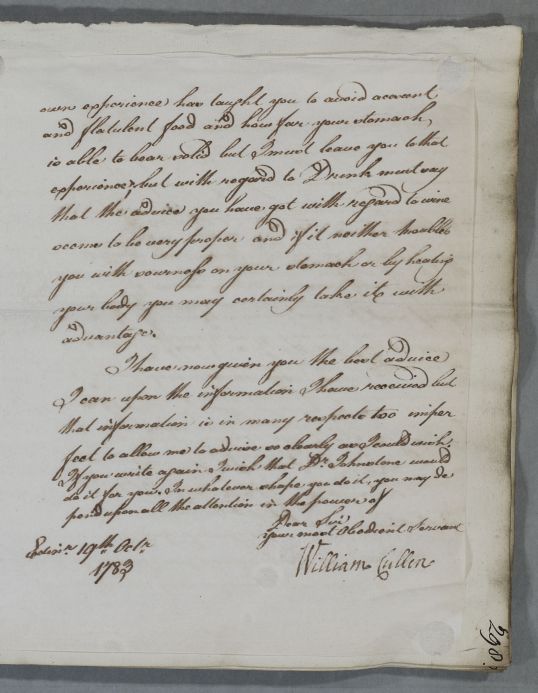 own experience has taught you to avoid acescent
and flatulent food and how far your stomach
is able to bear solid but I must leave you to that
experience, but with regard to Drink must say
that the advice you have got with regard to wine
seems to be very proper and if it neither troubles
you with sourness on your stomach or by heating
your body you may certainly take it with
advantage.
I have now given you the best advice
I can upon the information I have received but
that information is in many respects too imper
fect to allow me to advise so clearly as I could wish.
If you write again I wish that Dr. Johnstone would
do it for you. In whatever shape you do it, you may de
pend upon all the attention in the power of
Dear Sir
Your most Obedient Servant
William Cullen
Edinr. 19th Octr.
1783
298.